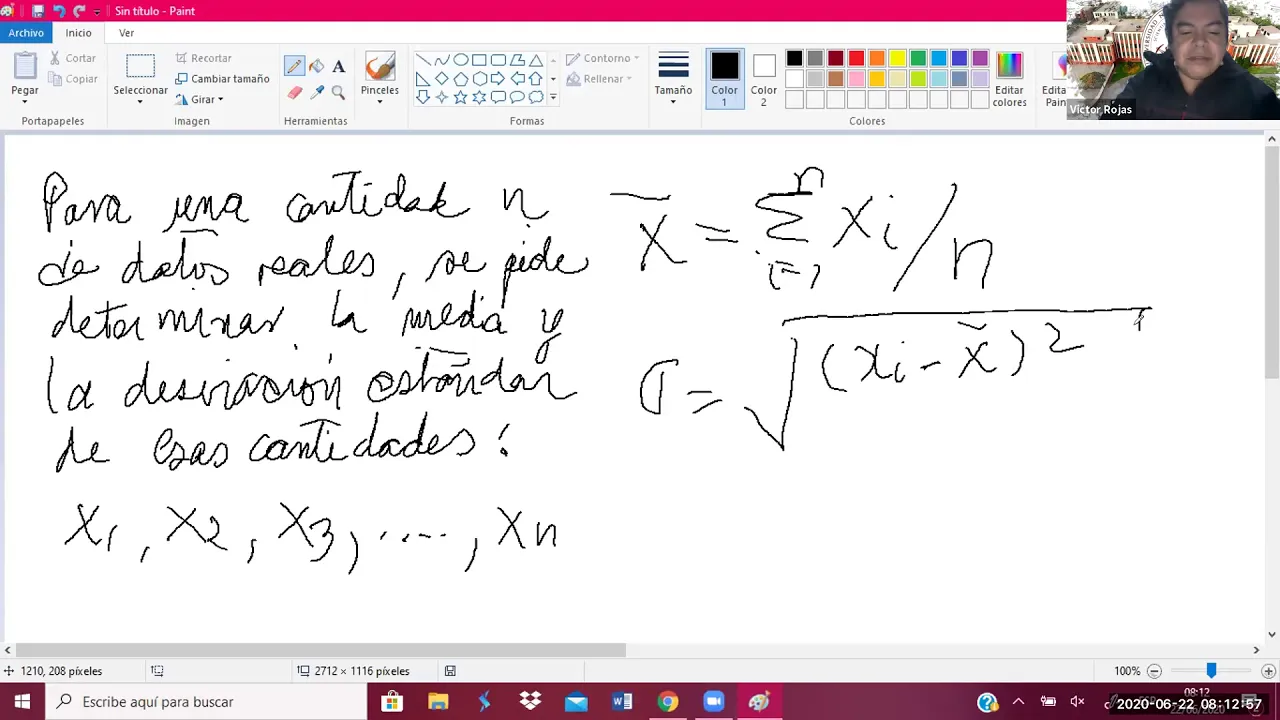 Sin título - Paint
Archivo Inicio Ver
Pegar
Cortar
Copiar
Portapapeles
Seleccionar
Recortar
Cambiar tamaño
Girar
Imagen
Herramientas
Pinceles
Contorno
Rellenar
Formas
Tamaño
Color 1
Color 2
Editar colores
Colores
Victor Rojas
Para una cantidad n
de datos reales, se pide
determinar la media y
la desviación estándar
de esas cantidades:
x1, x2, x3, ...., xn
x̄ = Σ n i=1 xi / n
σ = √(xi - x̄)2
1210, 208 píxeles
2712 × 1116 píxeles
100%
Escribe aquí para buscar
08:12
2020-06-22 08:12:57